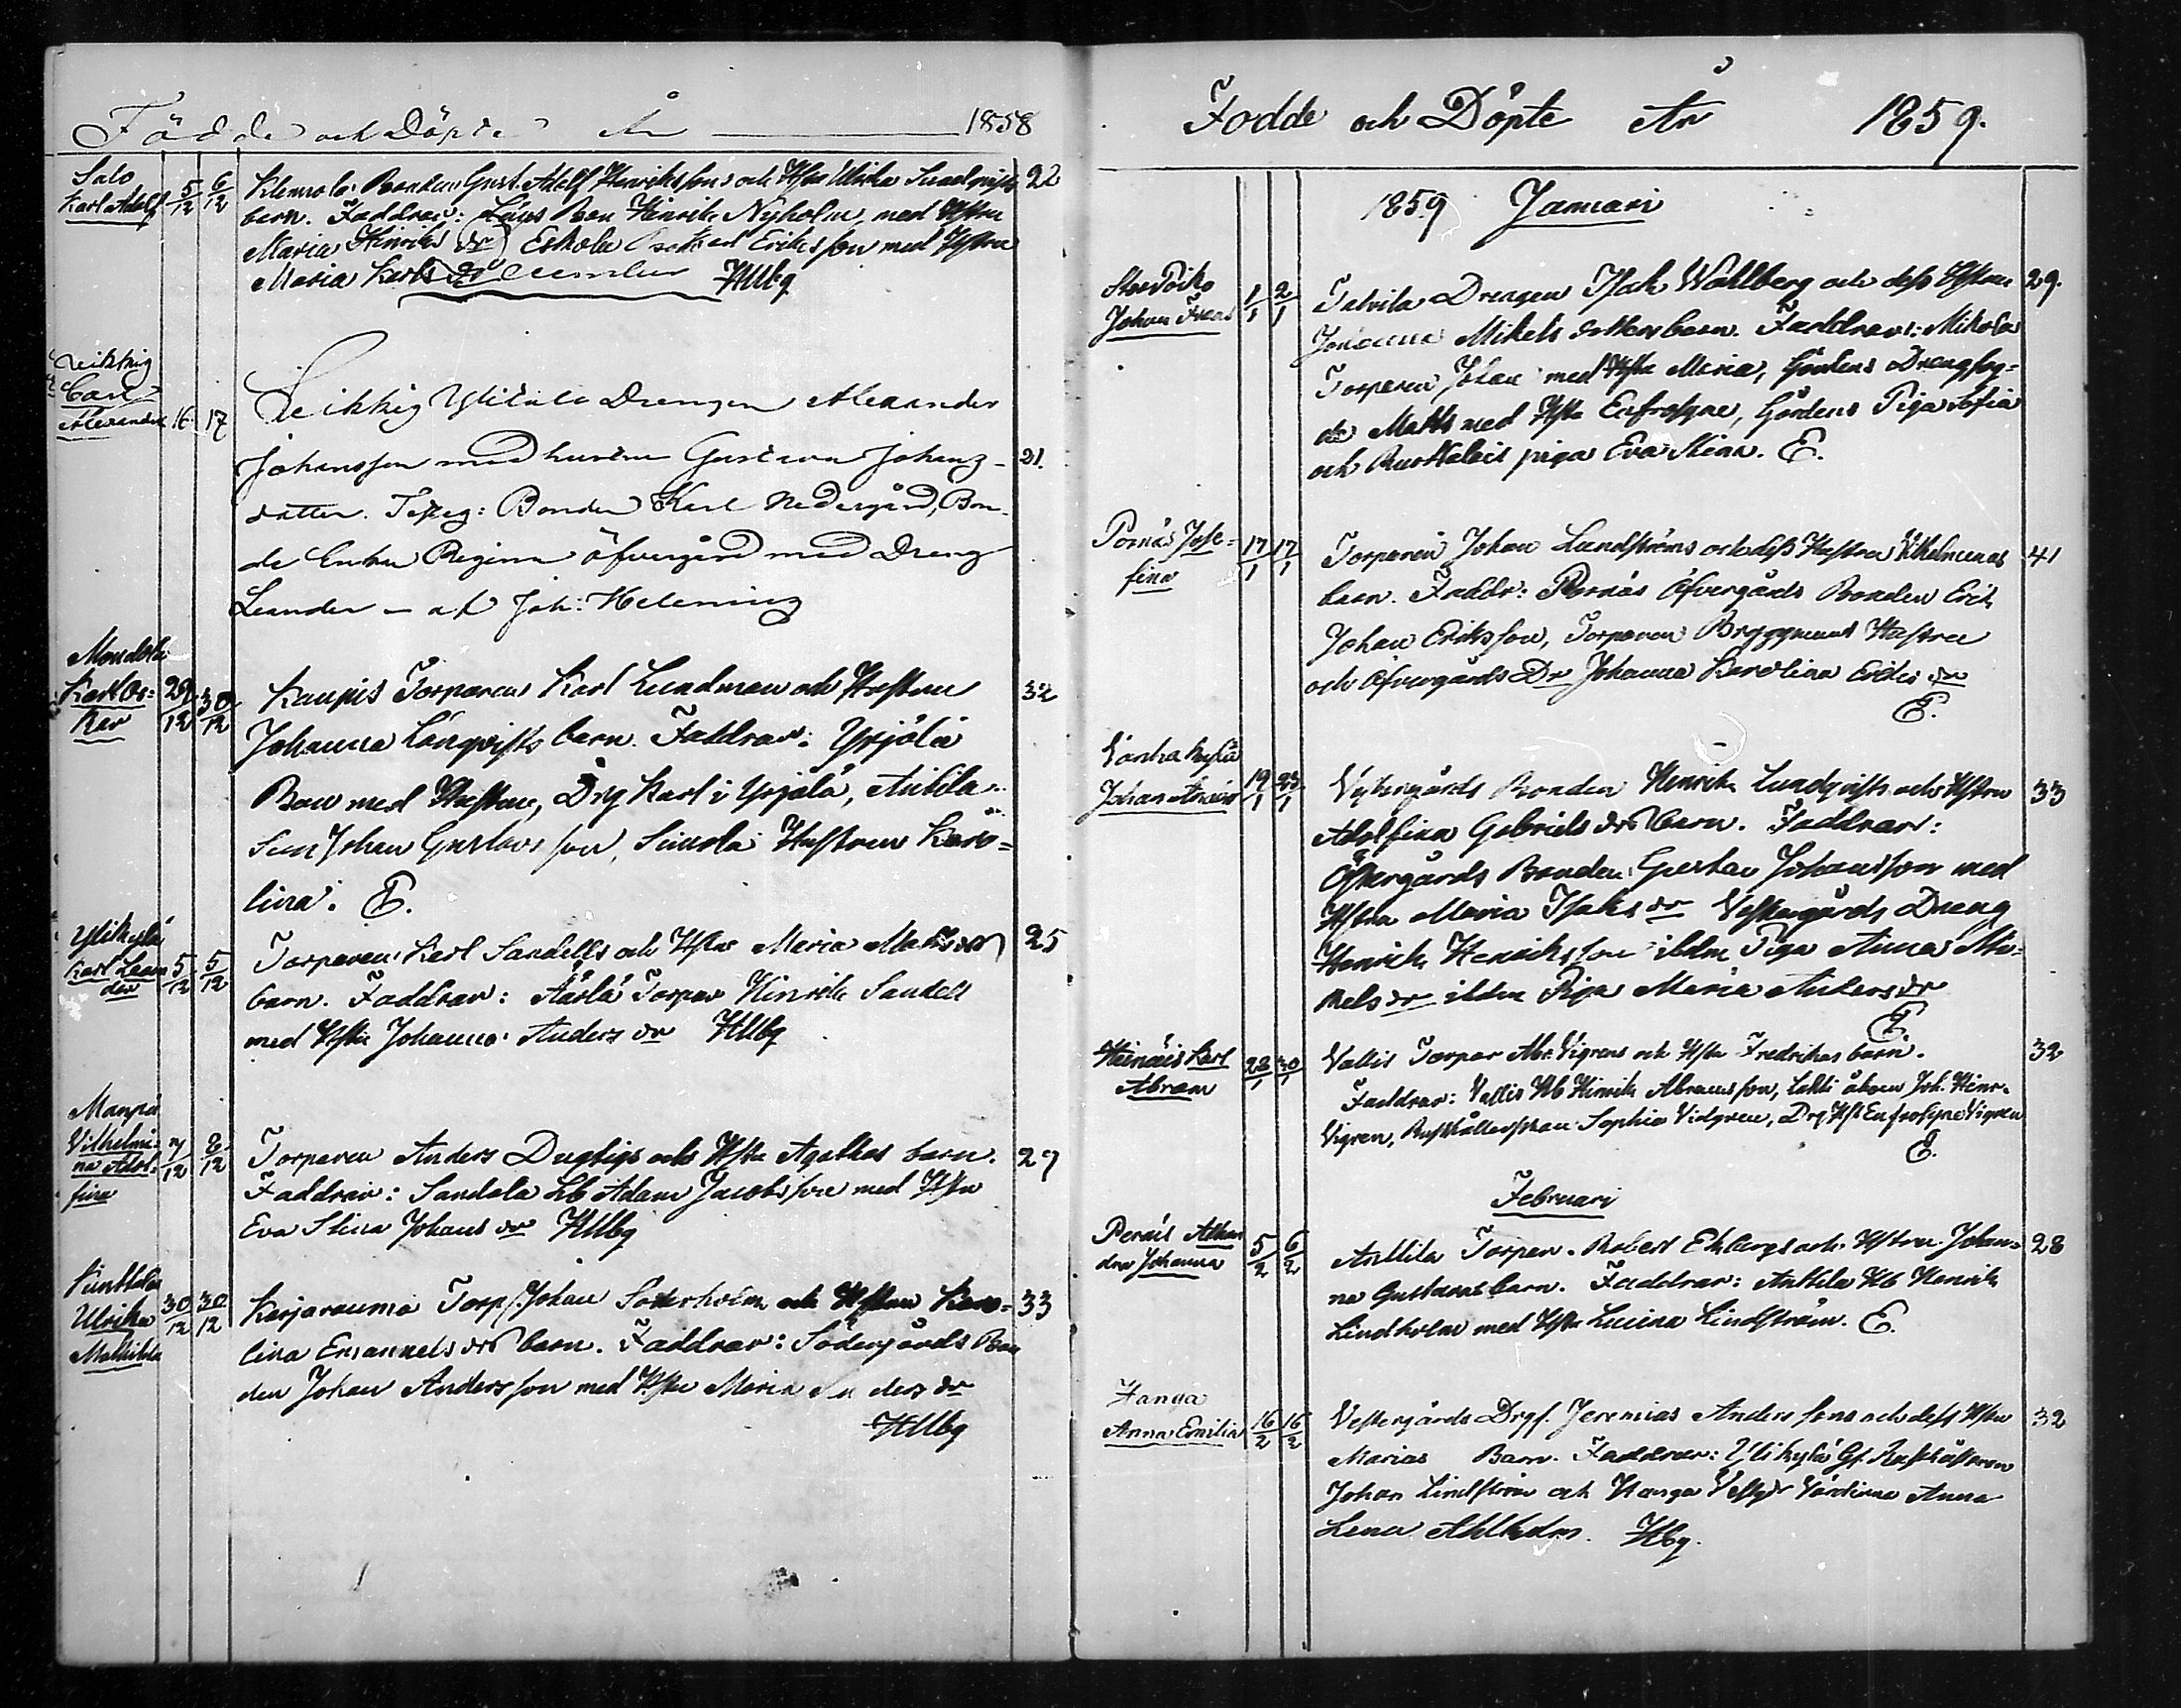 Födde och Döpte År 1858
Salo
Karl Adolf 5/12 6/12 Klemola Bonden Gust. Adolf Henrikssons och Hstru Ulrika 22
barn. Faddrar: Bon Henrik Nyholm med Hstru
Maria Henriks dr Eskola Eriksson med Hstru
Maria Karls dr HMbg
Carl
Alexander 16 17 Leikkig Ylitalo Drengen Alexander
Johansson med hustru Gustava Johanz- 21.
dotter. Testeg: Bonden Karl Nedergård, Bon-
de Enkan Regina Öfvergård med Dreng
Leander – af Joh: Helenius
Karl Os=
kar 29/12 30/12 Kaupis Torparen Karl Lindman och Hustru 32
Johanna Lönqvists barn. Faddrar: Ypjölä
Bon med Hustru, Drg Karl i Ypjölä, Anttila
Son Johan Gustavsson, Simola Hustrun Karo=
lina. E.
Ylikylä
Karl Lean
der 5/12 5/12 Torparen Karl Sandells och Hstru Maria Matts dr 25
barn. Faddrar: Torpar Hinrik Sandell
med Hstru Johanna Anders dr HMbg
Vilhelmi-
na Adol-
fina 7/12 8/12 Torparen Anders Dugtigs och Hstru Agathas barn. 27
Faddrar: Sandola Lb Adam Jacobsson med Hstru
Eva Stina Johans dr HMbg
Punttila
Ulrika
Mathilda 30/12 30/12 Karjarauma Torp. Johan Söderholm och Hstru Karo= 33
lina Emanuels dr barn. Faddrar: Södergårds Bon
den Johan Andersson med Hstru Maria Anders dr
HMbg
Födde och Döpte År 1859.
1859 Januari
Johan Frans 1/1 2/1 Talvila Drengen Isak Wahlberg och dess Hstru 29.
Johanna Mikels dotters barn. Faddrar: Mikola
Torparen Johan med Hstru Maria, Gårdens Drengfog=
de Matts med Hstru Eufrosyne, Gårdens Piga Sofia
och piga Eva Stina. E.
Pornäs Jose=
fina 17/1 17/1 Torparen Johan Lundströms och dess Hustru Vilhelminas 41
barn. Faddr: Pornäs Öfvergårds Bonden Erik
Johan Eriksson, Torparen Bryggmans Hustru
och Öfvergårds Dr Johanna Karolina Eriks dr
E.
Vanhakylä
Johan Anshelm 19/1 23/1 Vestergårds Bonden Henrik Lundqvists och Hstru 33
Adolfina Gabriels dr barn. Faddrar:
Östergårds Bonden Gustav Johansson med
Hstru Maria Isaks dr Vestergårds Dreng
Henrik Henriksson ibdm Piga Anna Mi=
kels dr ibdm Piga Maria Anders dr
E.
Heinäis Karl
Abram 28/1 30/1 Vallis Torpar Abr. Vigrens och Hstru Fredrikas barn. 32
Faddrar: Vallis Hb Hinrik Abramsson, Lahti åboen Joh. Henr.
Vigren, Rusthållerskan Sophia Vidgren, Drg Hst Eufrosyne Vigren
E.
Februari
Peräis
dra Johanna 5/2 6/2 Anttila Torpar. Robert Ekbergs och Hstru Johan= 28
na Gustavas barn. Faddrar: Anttila Hb Henrik
Lindholm med Hstru Lucina Lindström. E.
Hanga
Anna Emilia 16/2 16/2 Vestergårds Drgf. Jeremias Anderssons och dess Hstru 32
Marias Barn. Faddrar: Ylikylä Gf. Rusthållaren
Johan Lindström och Hanga Vestgr Värdinna Anna
Lena Ahlholm. Hbg.